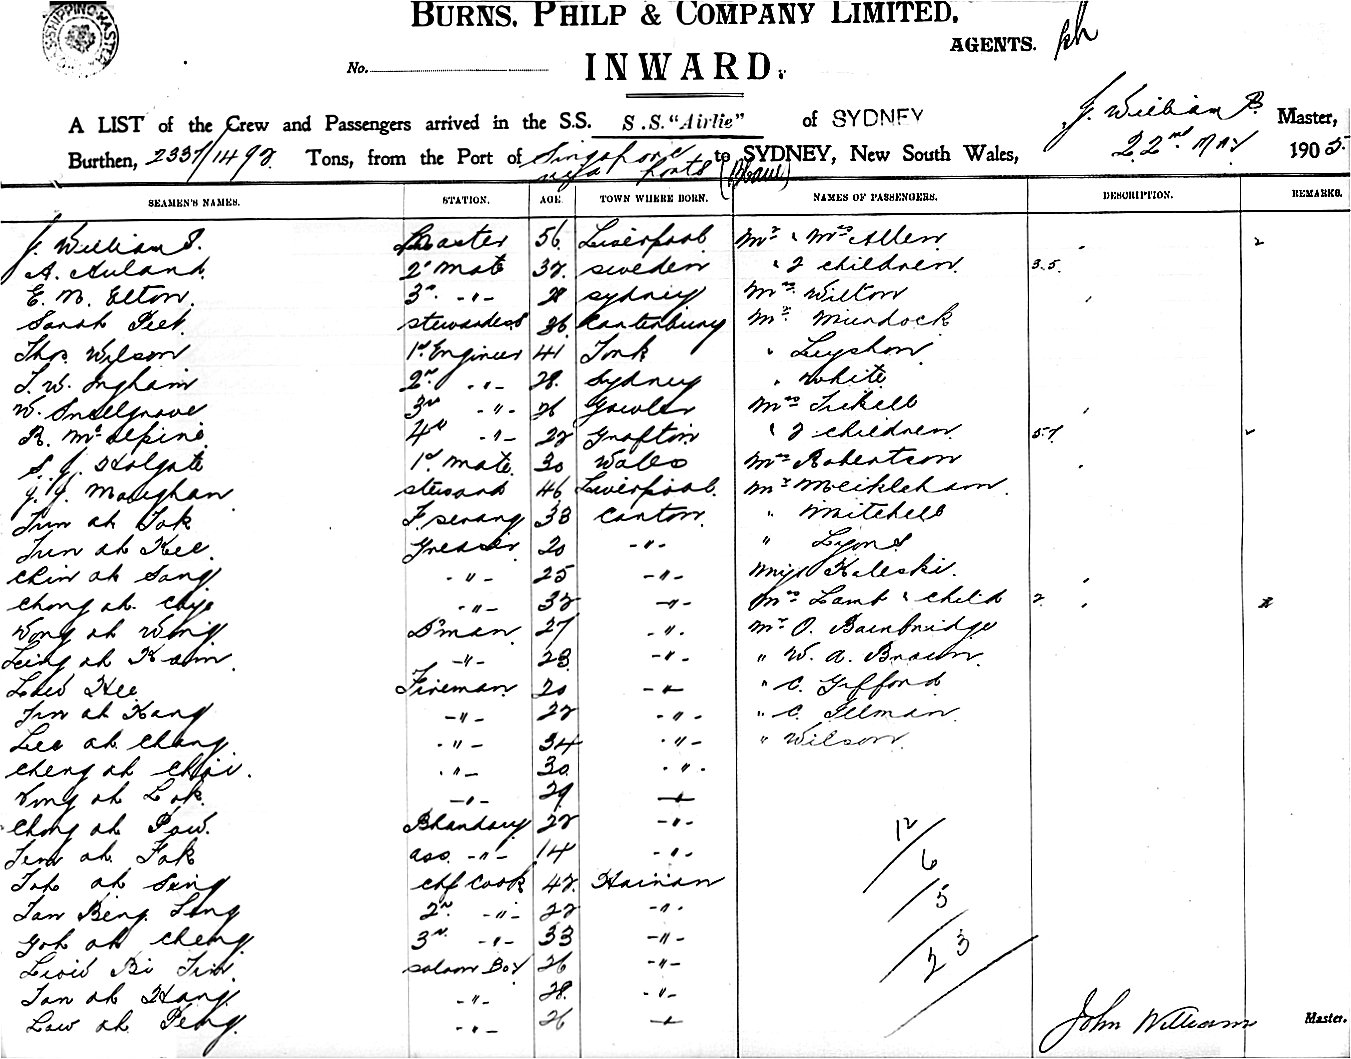 SHIPPING MASTER
BURNS, PHILP & COMPANY LIMITED,
AGENTS.
No.
INWARD.
A LIST of the Crew and Passengers arrived in the S.S. S.S. "Airlie" of SYDNEY J. Williams Master,
Burthen, 2337/1492 Tons, from the Port of Singapore to SYDNEY, New South Wales, 22nd May 1905
via ports
SEAMEN'S NAMES. STATION. AGE. TOWN WHERE BORN. NAMES OF PASSENGERS. DESCRIPTION. REMARKS.
J. Williams. Master 56 Liverpool Mr & Mrs Allen
A. Auland 2d Mate 32 Sweden & 2 children 3.5.
E. N. Elton 3rd -"- 28 Sydney Mrs Wilton
Sarah stewardess 36 Canterbury Mr Murdock
Thos Wilson 1st Engineer 41 York " Leyshon
T. W. Ingham 2nd -"- 28 Sydney " White
W. Snellgrove 3rd -"- 26 Gawler Mrs Tickell
R. McAlpine 4th -"- 22 Grafton & 2 children 5.7.
S. J. Holgate 1st Mate 30 Wales Mrs Robertson
J. J. Maughan steward 46 Liverpool Mr Meikleham
ah Fok F. serang 33 Canton " Mitchell
ah Kee Greaser 20 -"- " Lyons
Chin ah Sang -"- 25 -"- Miss Kaleski.
Chong ah -"- 32 -"- Mrs Lamb & child 2
Wong ah Wing D'man 27 -"- Mr O. Bainbridge
ah Kam -"- 23 -"- " W. A. Brown
Low Kee Fireman 20 -"- " C. Gifford
ah Kang -"- 22 -"- " C. Tilman
Lee ah Chang -"- 34 -"- " Wilson
Cheng ah Choi -"- 30 -"-
Wong ah Lok -"- 29 -"-
Chong ah Pow Bhandary 22 -"-
ah Fok ass. -"- 14 -"-
Toh ah Seng chf Cook 42 Hainan
Tan Beng Seng 2nd -"- 22 -"-
Goh ah Cheng 3rd -"- 33 -"-
Bi saloon Boy 26 -"-
Tan ah Hang -"- 28 -"-
Low ah Peng -"- 26 -"-
12
6
5
23
John William Master.